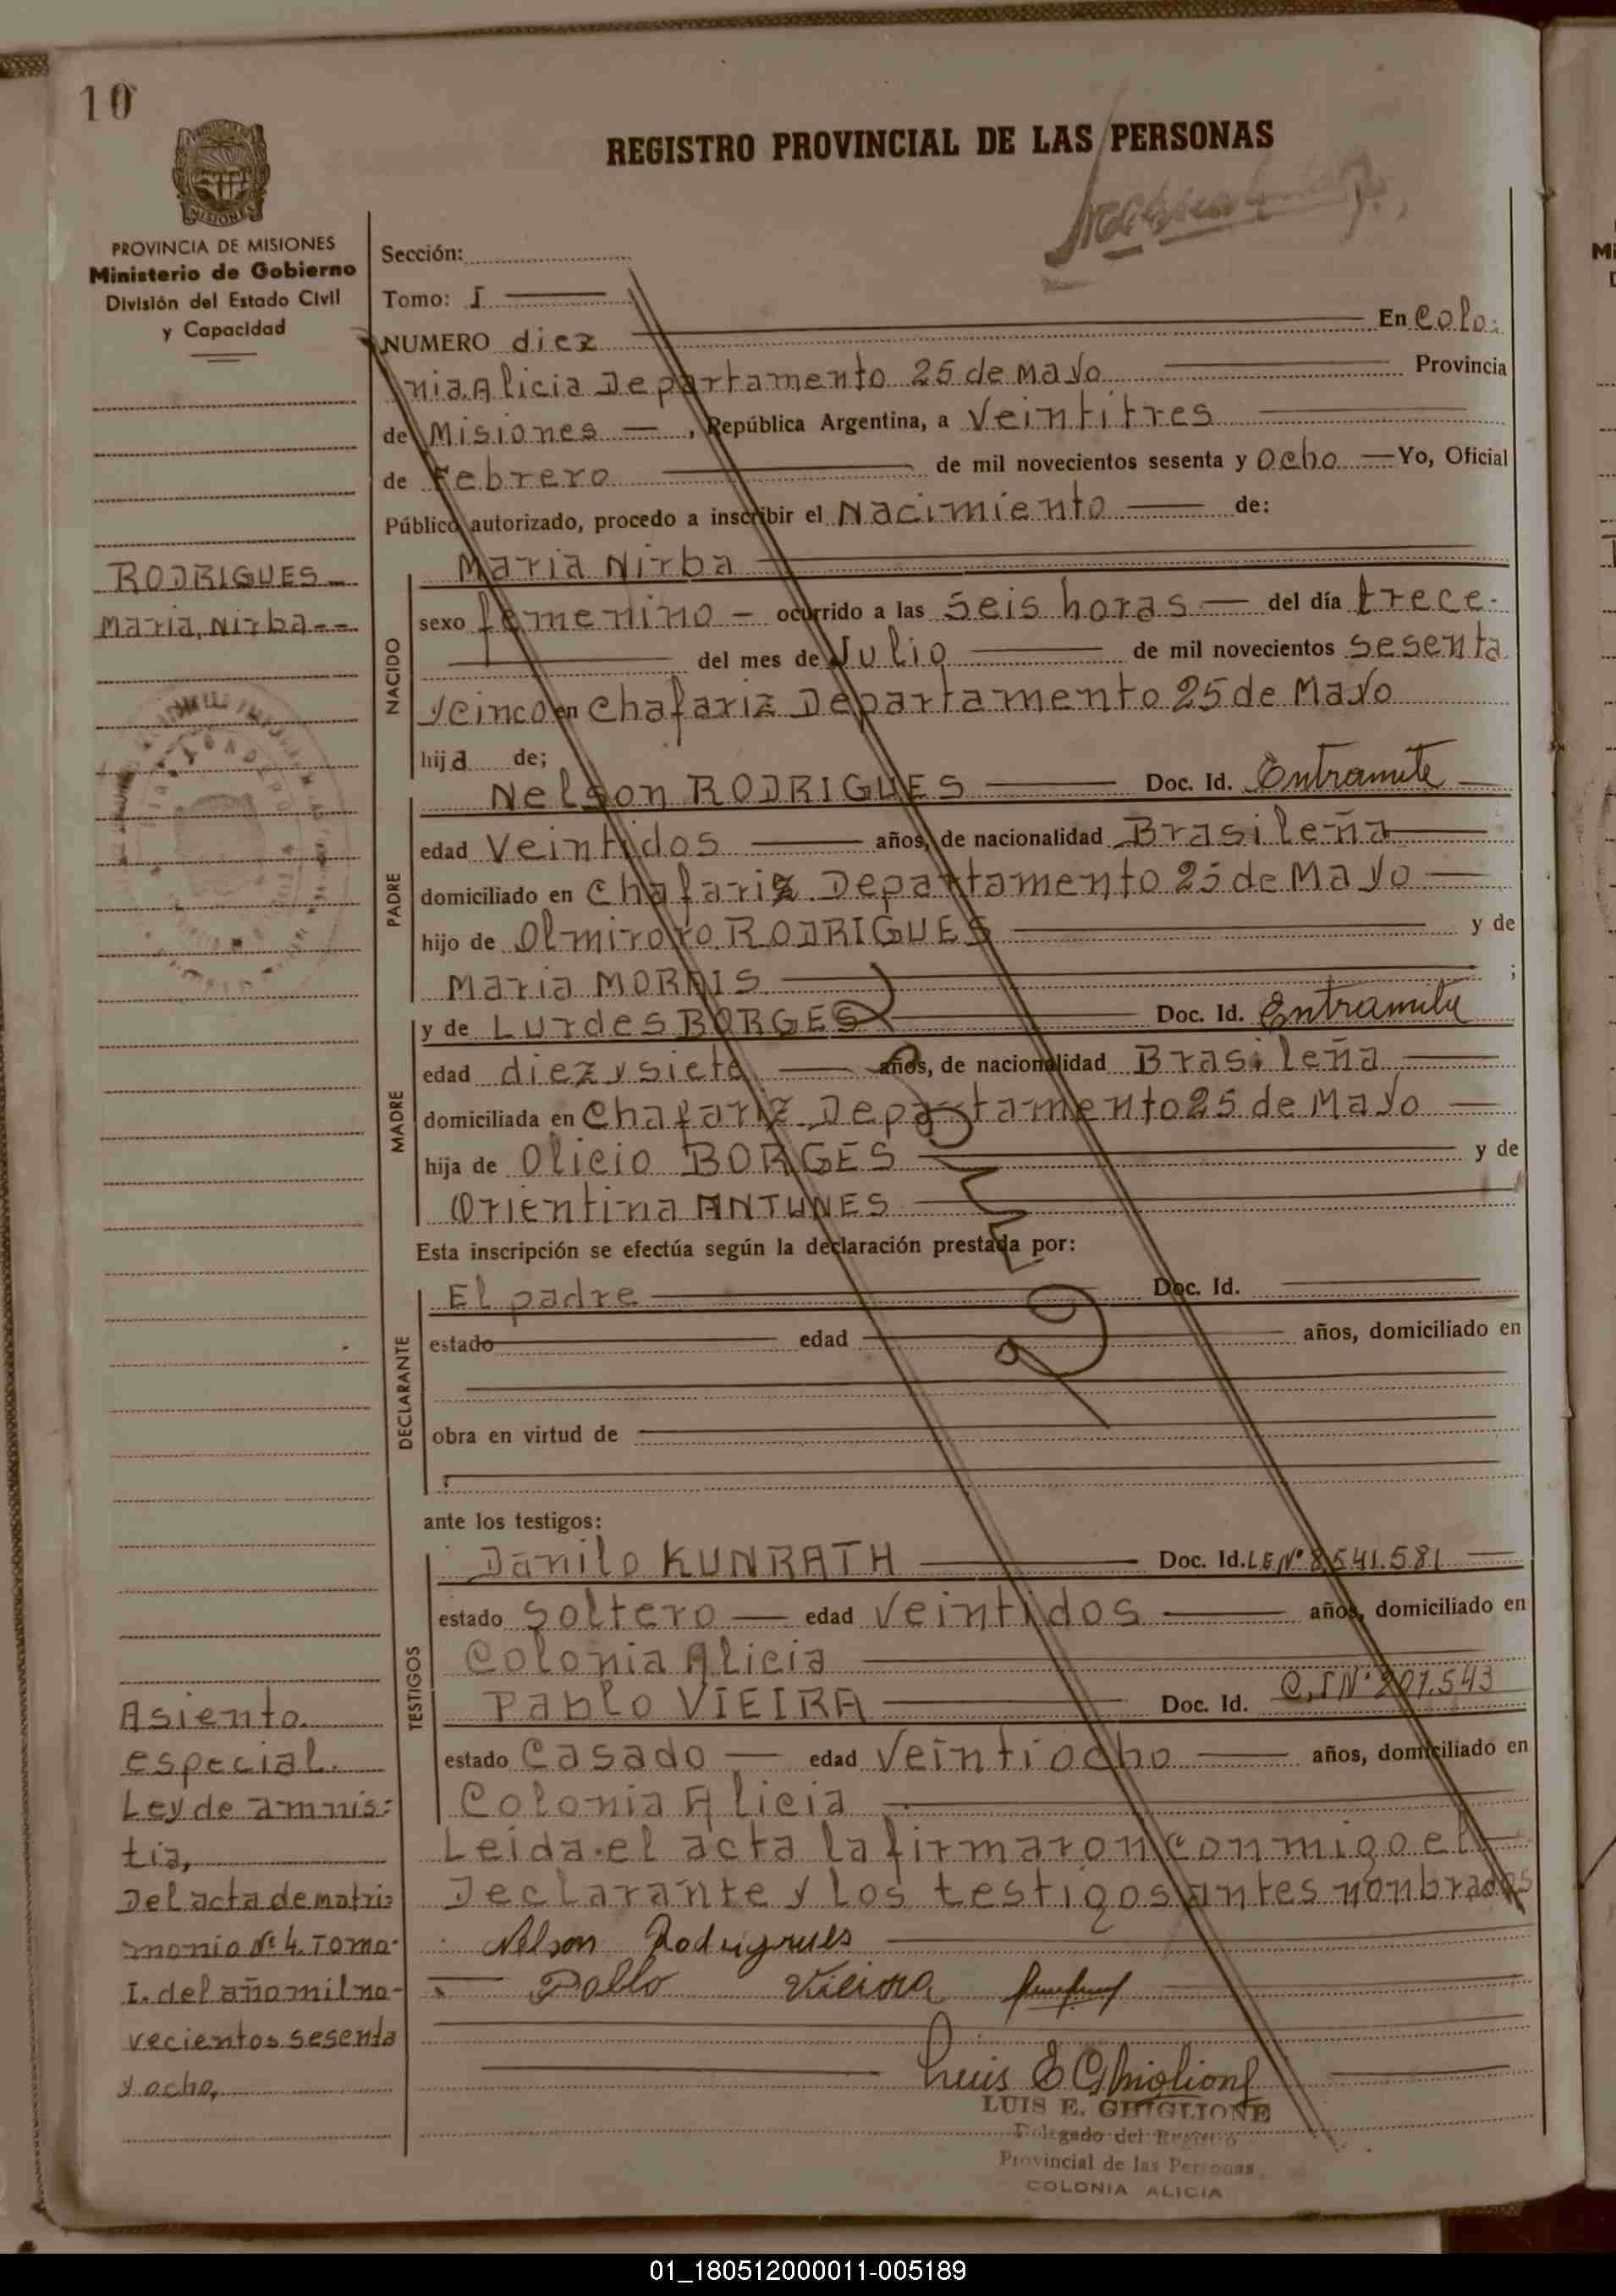 10
REGISTRO PROVINCIAL DE LAS PERSONAS
MISIONES
PROVINCIA DE MISIONES
Ministerio de Gobierno
División del Estado Civil
y Capacidad
RODRIGUES
Maria, Nirba
Sección:
Tomo: I
NUMERO diez En Colo:
nia Alicia Departamento 25 de Mayo Provincia
de Misiones, República Argentina, a Veintitres
de Febrero de mil novecientos sesenta y ocho Yo, Oficial
Público autorizado, procedo a inscribir el Nacimiento de:
NACIDO
Maria Nirba
sexo femenino ocurrido a las Seis horas del día trece
del mes de Julio de mil novecientos sesenta
y cinco en Chafariz Departamento 25 de Mayo
hija de;
PADRE
Nelson RODRIGUES Doc. Id. Entramite
edad Veintidos años, de nacionalidad Brasileña
domiciliado en Chafariz Departamento 25 de Mayo
hijo de RODRIGUES y de
Maria MORAIS ;
MADRE
y de Lurdes BORGES Doc. Id. Entramite
edad diez y siete años, de nacionalidad Brasileña
domiciliada en Chafariz Departamento 25 de Mayo
hija de Olicio BORGES y de
Orientina ANTUNES
Esta inscripción se efectúa según la declaración prestada por:
DECLARANTE
El padre Doc. Id.
estado edad años, domiciliado en
obra en virtud de
ante los testigos:
TESTIGOS
Danilo KUNRATH Doc. Id. LE Nº 8.541.581
estado soltero edad Veintidos años, domiciliado en
Colonia Alicia
Pablo VIEIRA Doc. Id. C.I Nº 207.543
estado Casado edad Veintiocho años, domiciliado en
Colonia Alicia
Leida el acta la firmaron conmigo el
Declarante y los testigos antes nonbrados
Nelson Rodrigues
Pablo Vieira
Luis E Ghiglione
LUIS E. GHIGLIONE
Delegado del Registro
Provincial de las Personas
COLONIA ALICIA
Asiento
especial.
Ley de amnis:
tia,
Del acta de matri:
monio Nº 4. Tomo
I. del año mil no-
vecientos sesenta
y ocho,
01_180512000011-005189